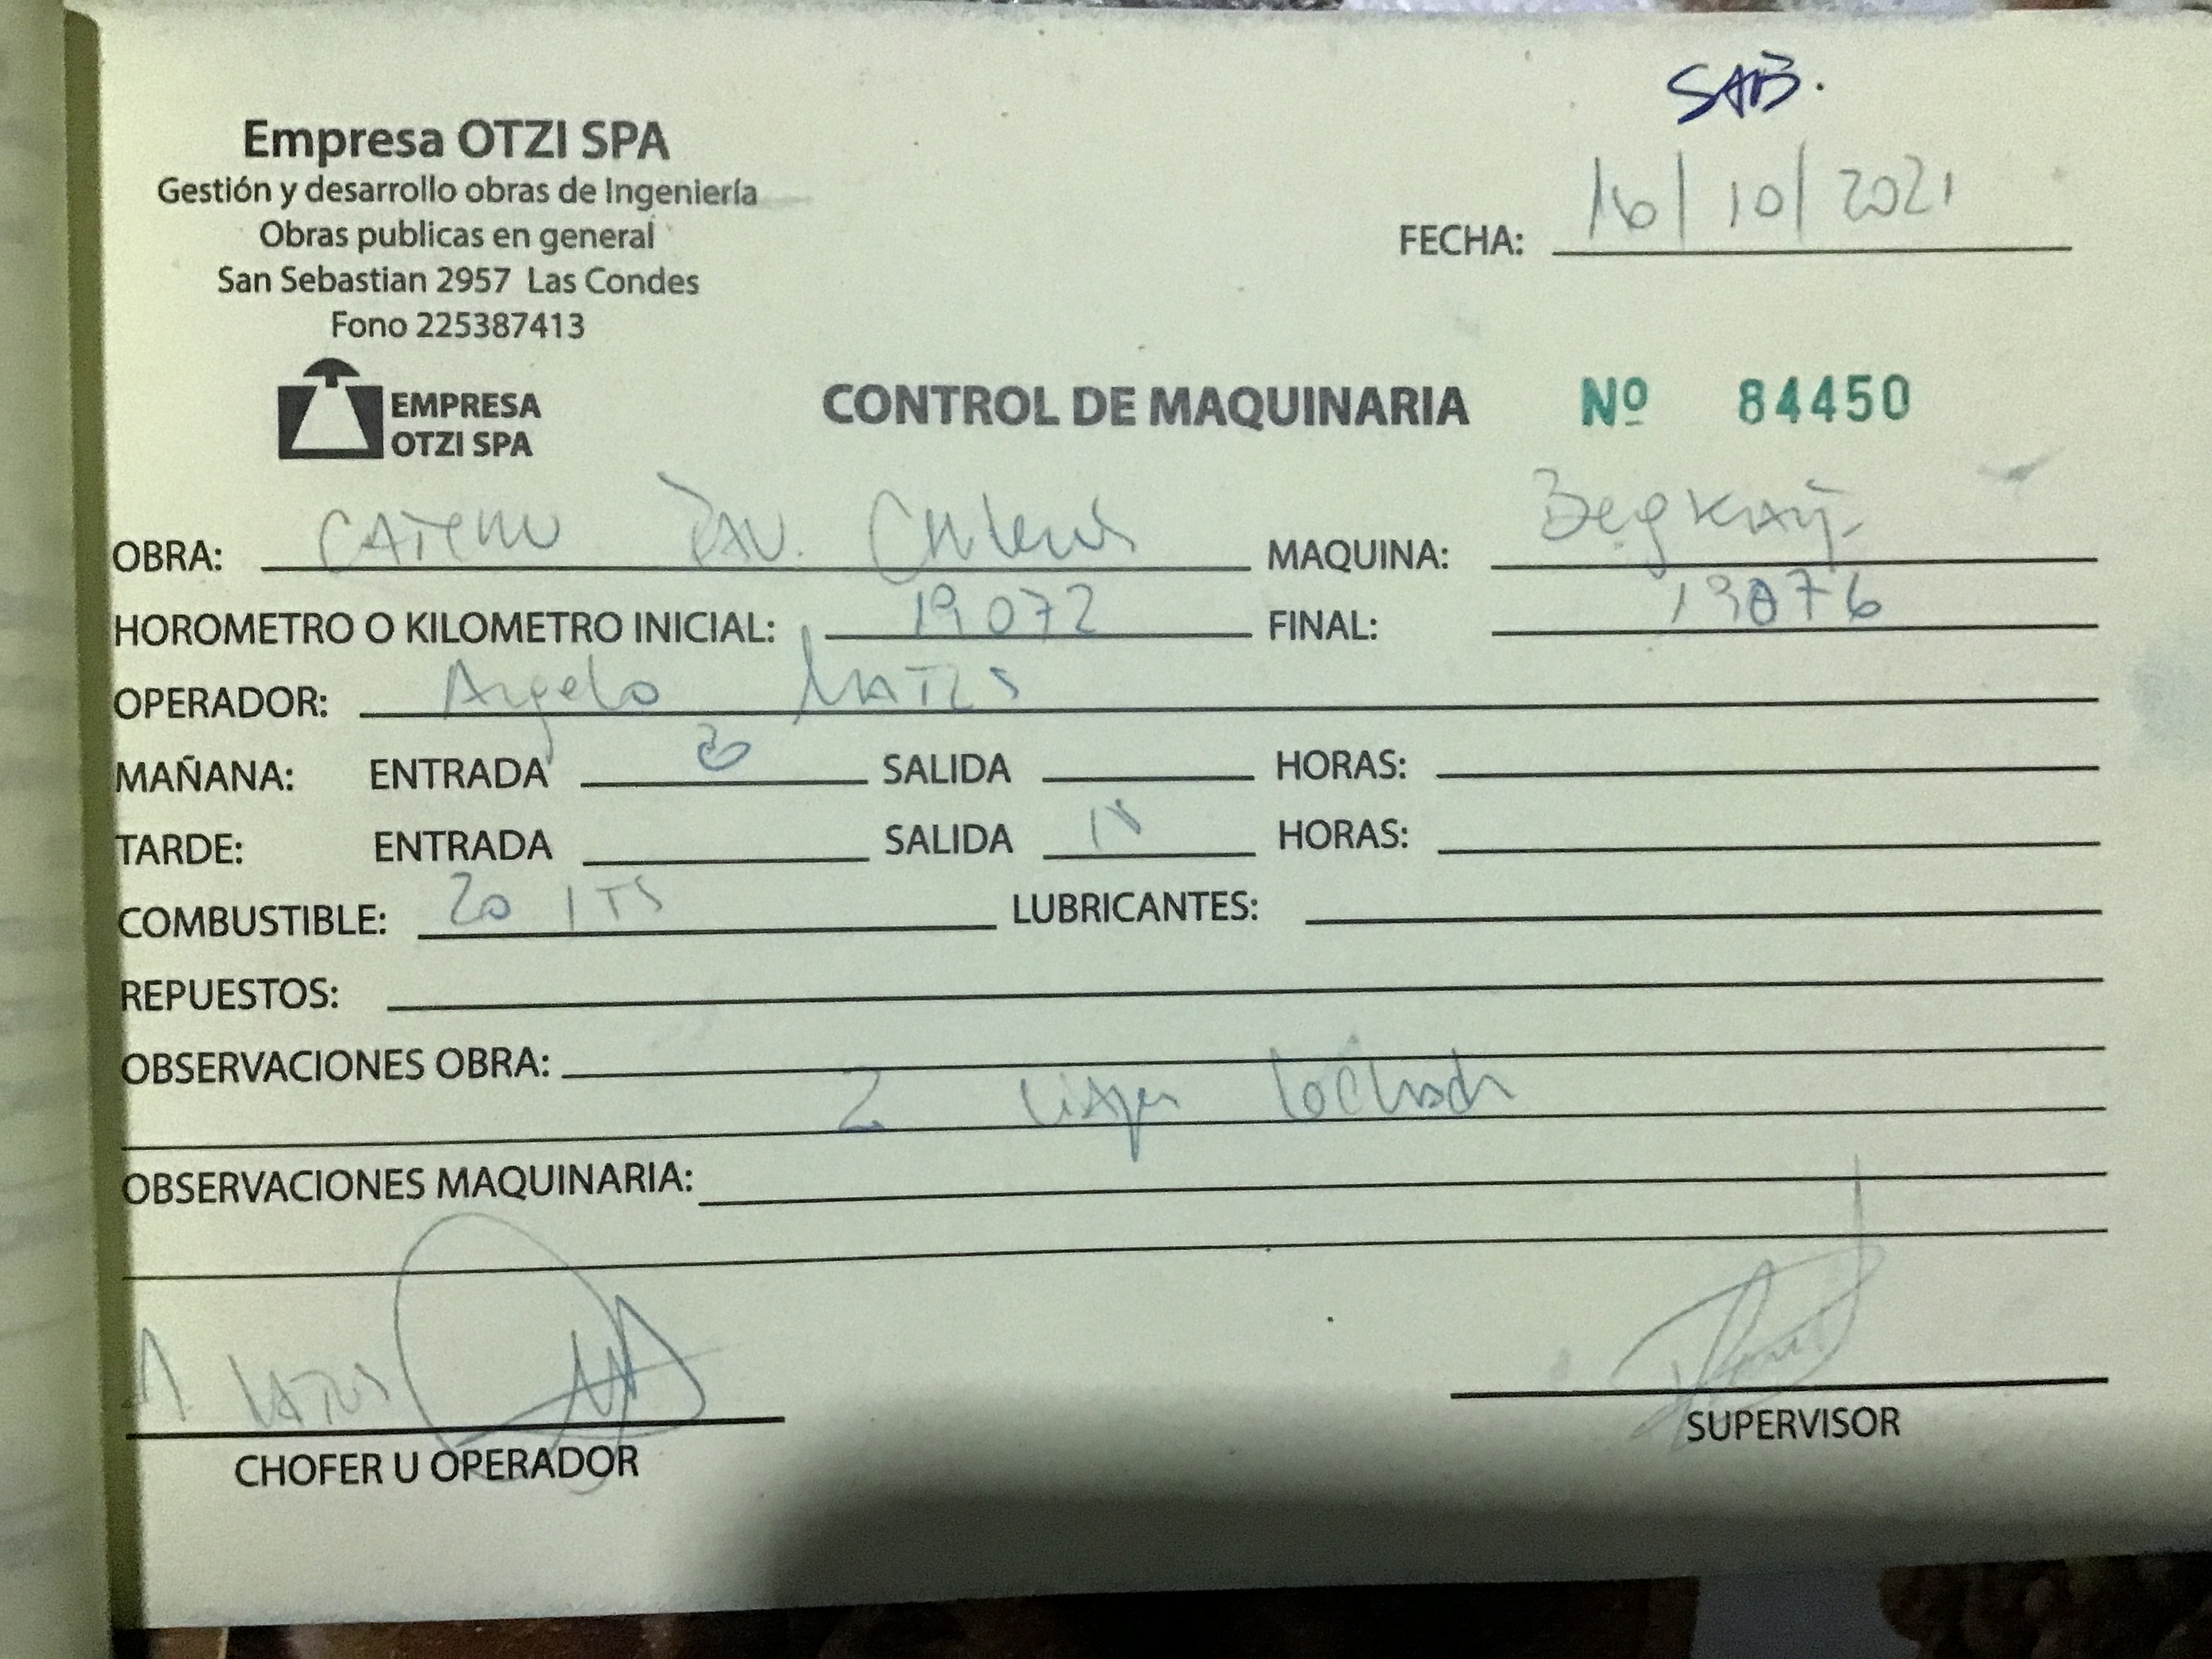 SAB.
Empresa OTZI SPA
Gestión y desarrollo obras de Ingeniería
Obras publicas en general
San Sebastian 2957 Las Condes
Fono 225387413
FECHA: 16/10/2021
EMPRESA
OTZI SPA
CONTROL DE MAQUINARIA Nº 84450
OBRA: MAQUINA:
HOROMETRO O KILOMETRO INICIAL: 19072 FINAL: 19076
OPERADOR: Angelo
MAÑANA: ENTRADA 8 SALIDA HORAS:
TARDE: ENTRADA SALIDA HORAS:
COMBUSTIBLE: 20 LTS LUBRICANTES:
REPUESTOS:
OBSERVACIONES OBRA:
2 viajes
OBSERVACIONES MAQUINARIA:
CHOFER U OPERADOR
SUPERVISOR